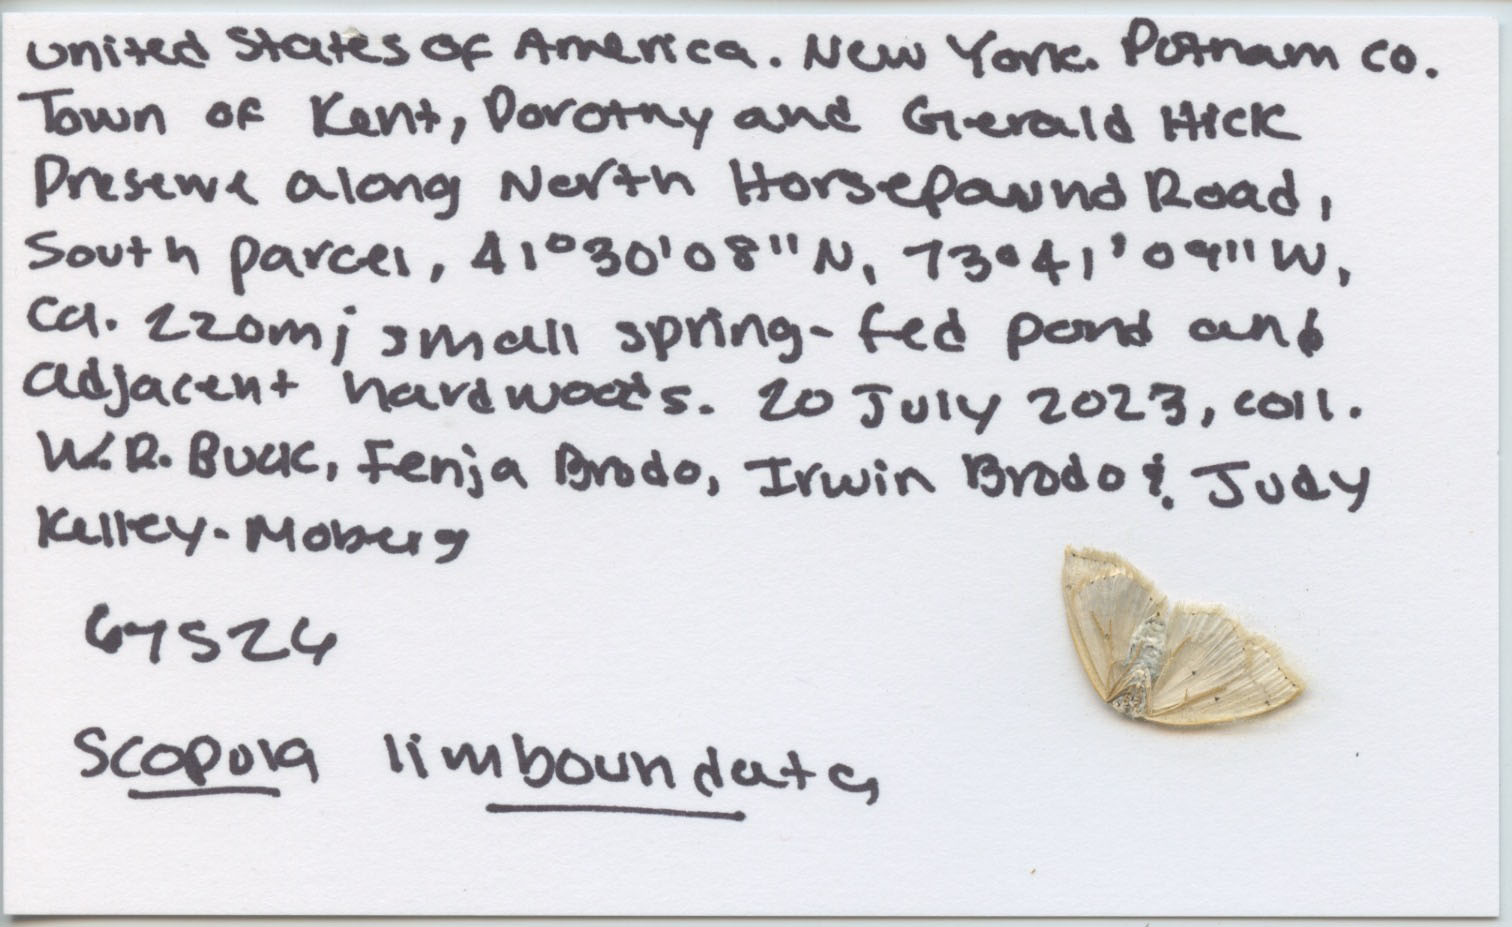 United States of America. New York. Putnam Co.
Town of Kent, Dorothy and Gerald Hick
Preserve along North Horsepound Road,
South parcel, 41°30'08"N, 73°41'09"W,
ca. 220m; small spring-fed pond and
adjacent hardwoods. 20 July 2023, coll.
W.R. Buck, Fenja Brodo, Irwin Brodo & Judy
Kelley-Moberg
67526
Scopula limboundata